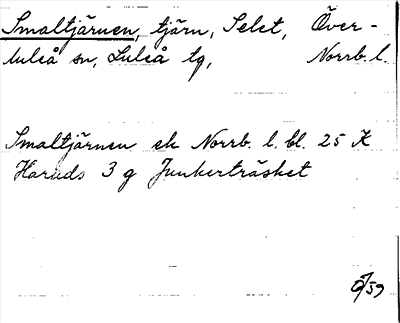 Smaltjärnen, tjärn, Selet, Över-
luleå sn, Luleå tg, Norrb. l.
Smaltjärnen ek Norrb. l. bl. 25 K
Harads 3 g Junkerträsket
/59